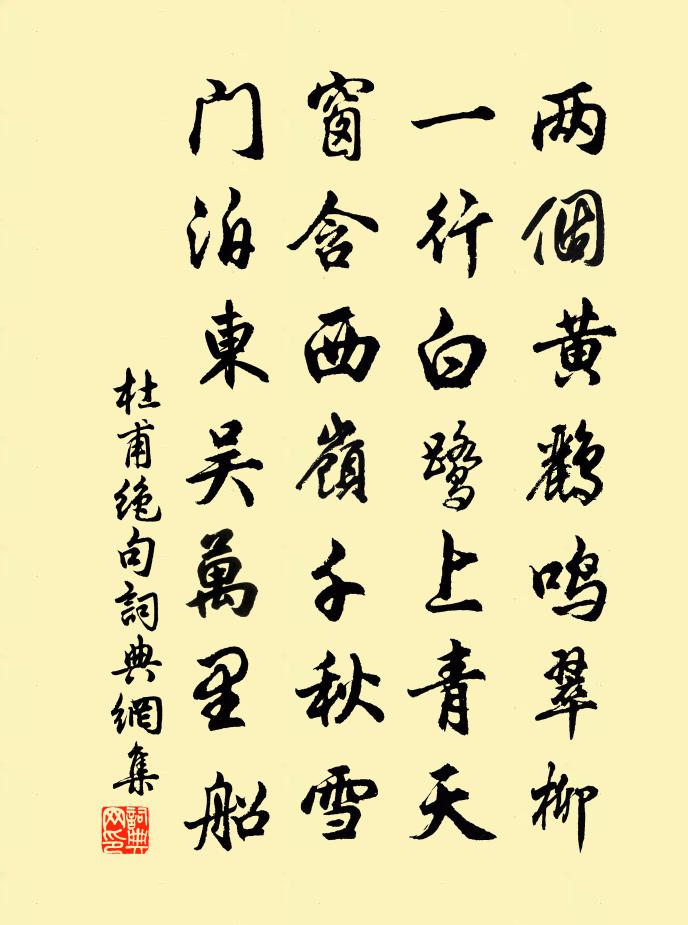 两個黄鸝鸣翠柳
一行白鹭上青天
窗含西嶺千秋雪
门泊東吴萬里船
杜甫绝句詞典網集
詞典网印